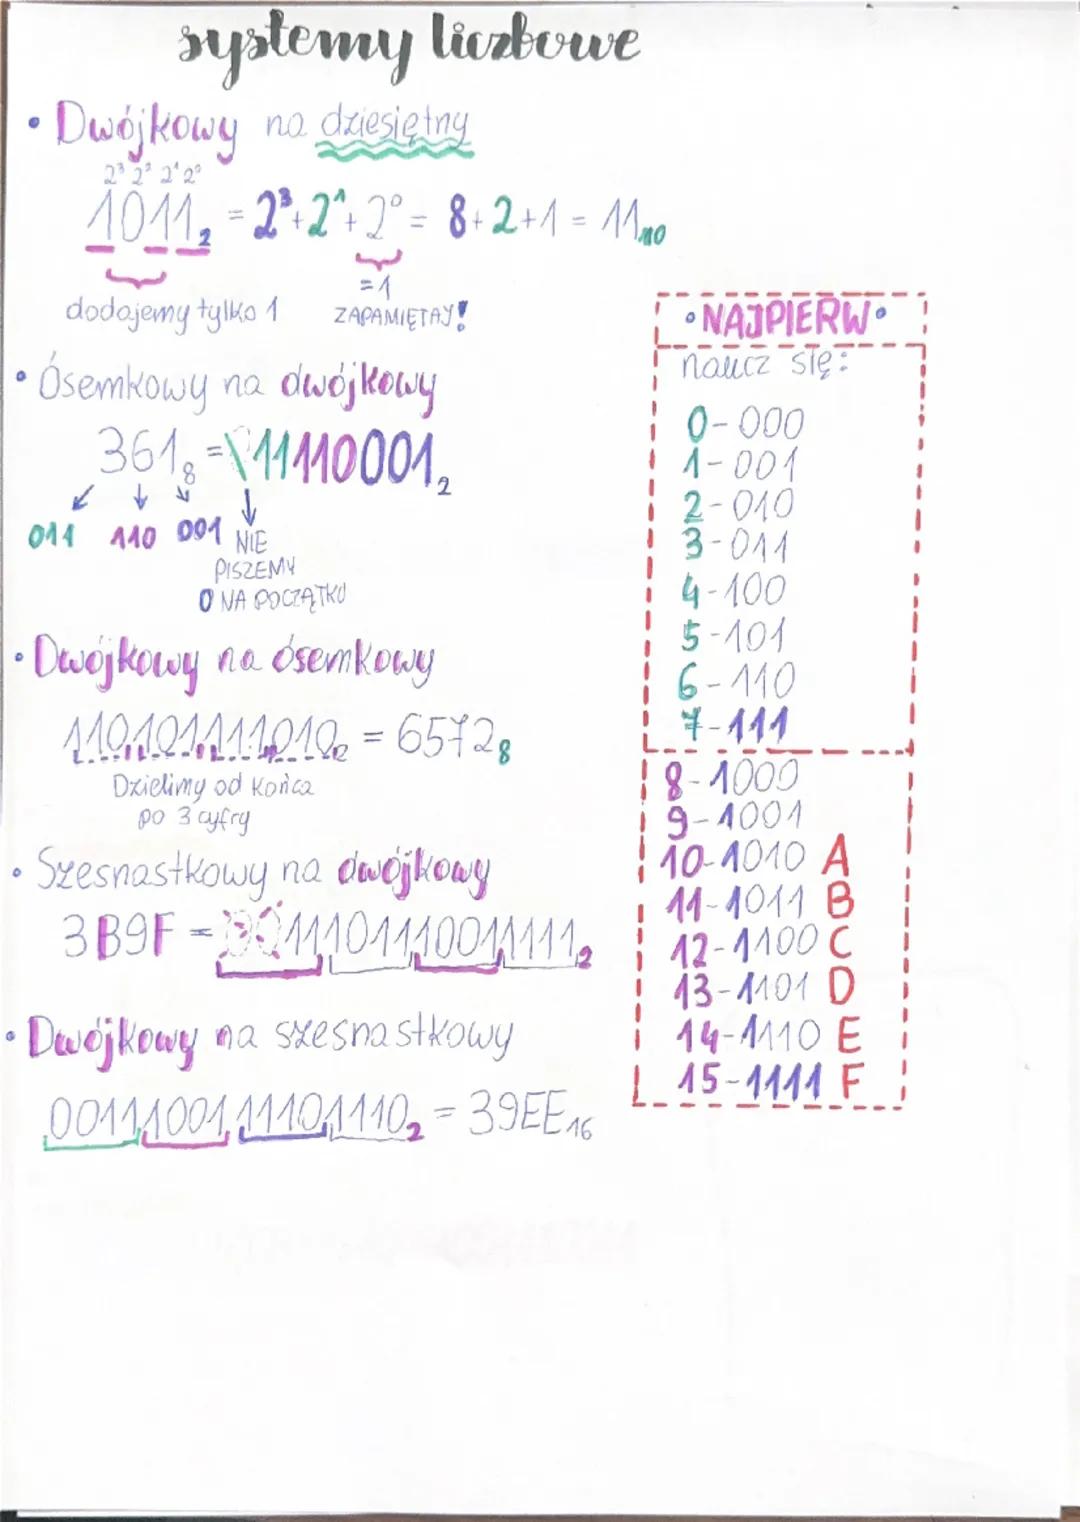 systemy liczbowe
• Dwójkowy na dziesiętny
2³ 2² 2¹ 2⁰
1011₂ = 2³+2¹+2⁰ = 8+2+1 = 11₁₀
dodajemy tylko 1
=1
ZAPAMIĘTAJ!
• Ósemkowy na dwójkowy
361₈ = \011110001₂
011 110 001
NIE
PISZEMY
0 NA POCZĄTKU
• Dwójkowy na ósemkowy
110101111010₂ = 6572₈
Dzielimy od końca
po 3 cyfry
• Szesnastkowy na dwójkowy
3B9F = 0011101110011111₂
• Dwójkowy na szesnastkowy
0011100111101110₂ = 39EE₁₆
• NAJPIERW •
naucz się:
0-000
1-001
2-010
3-011
4-100
5-101
6-110
7-111
8-1000
9-1001
10-1010 A
11-1011 B
12-1100 C
13-1101 D
14-1110 E
15-1111 F